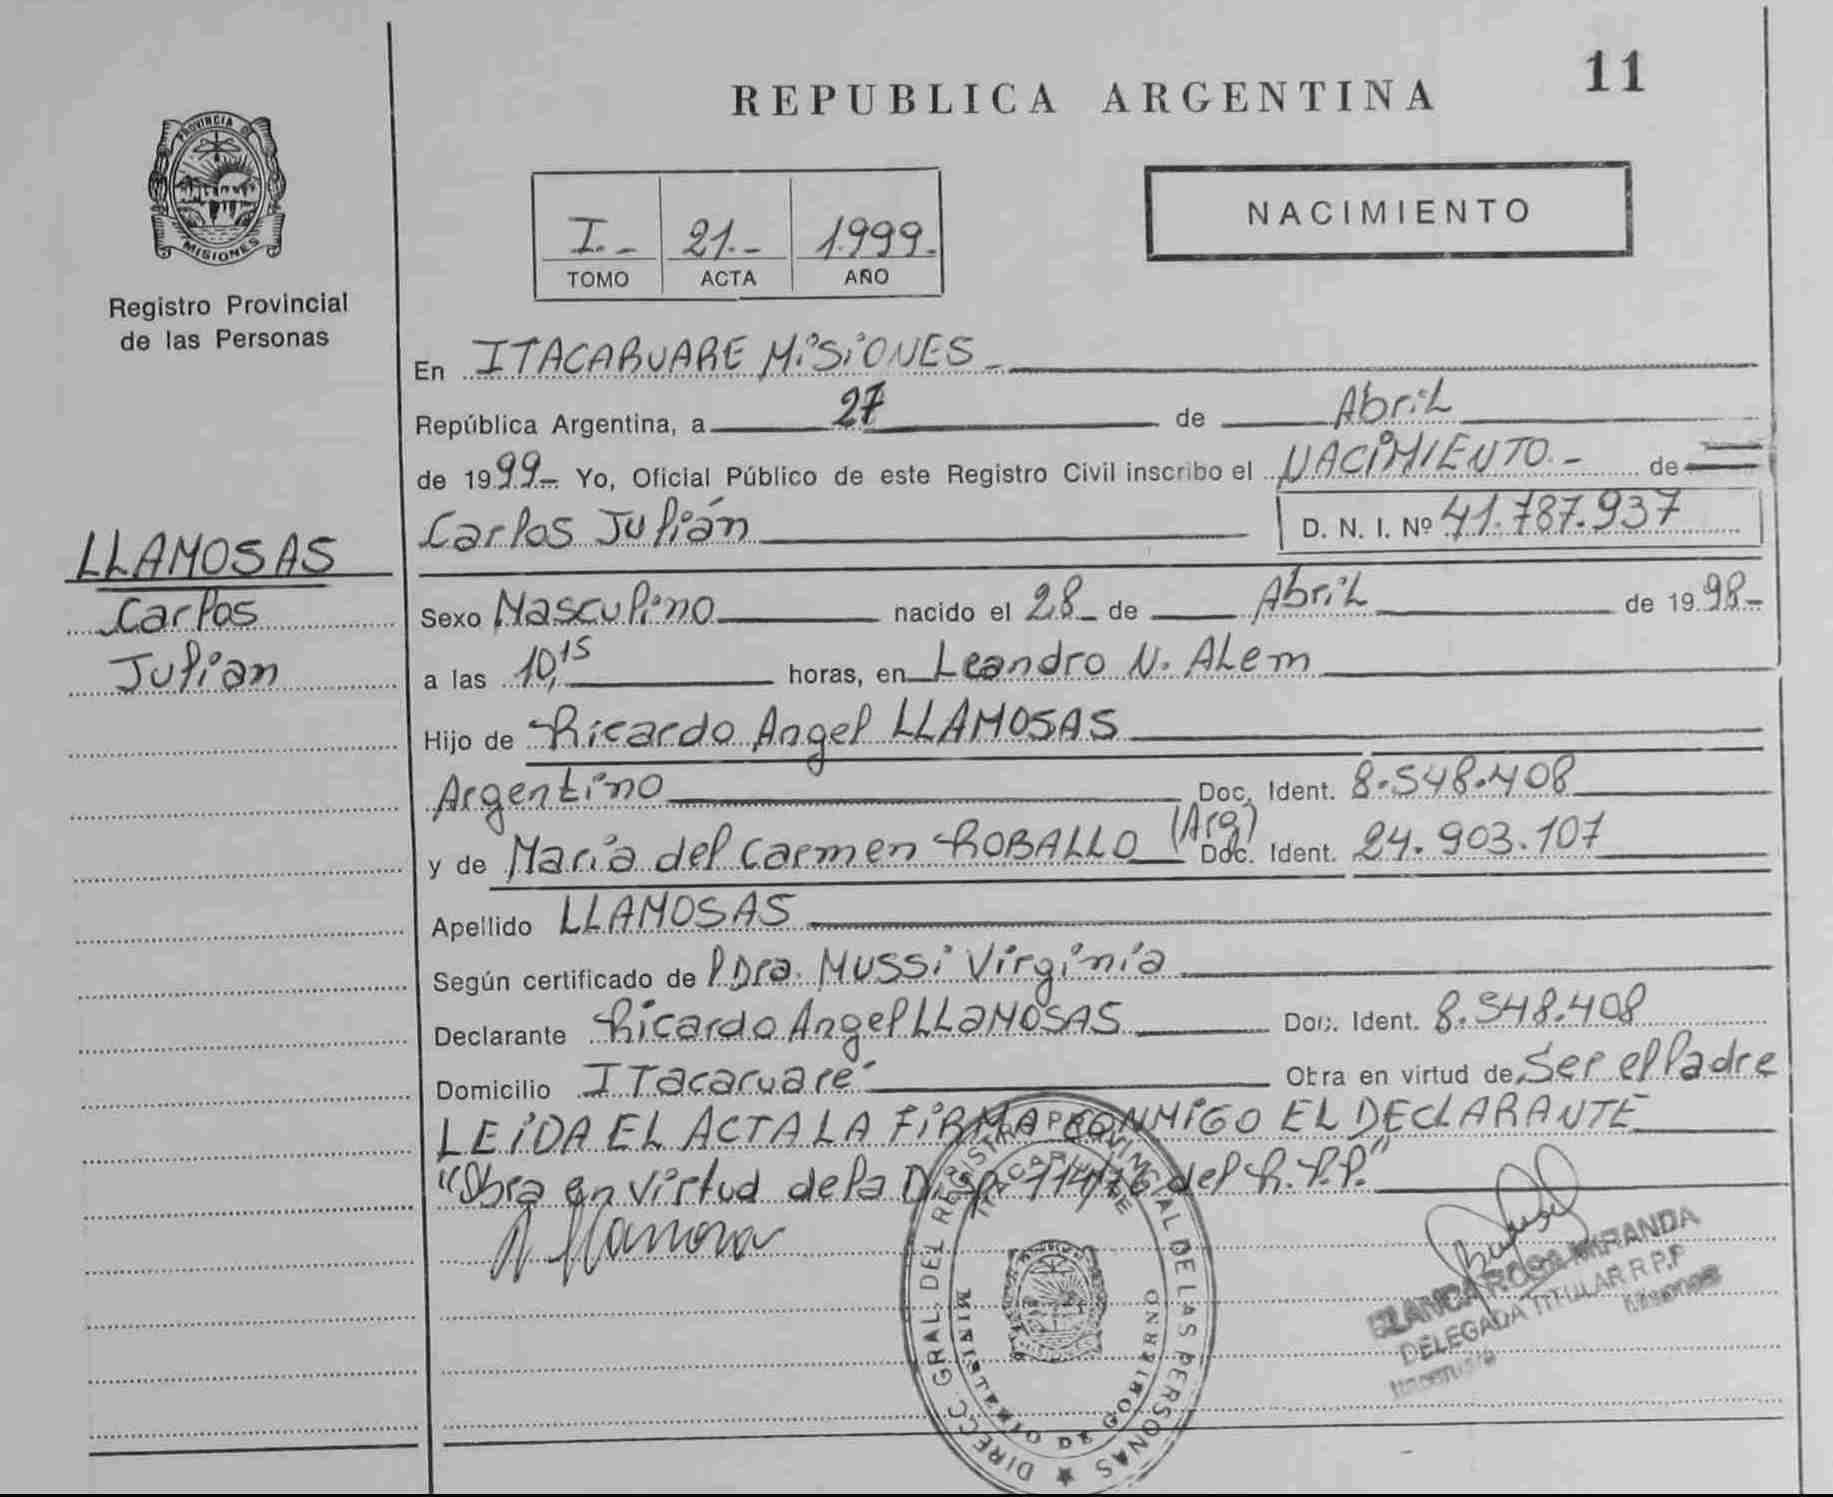 11
REPUBLICA ARGENTINA
PROVINCIA DE
MISIONES
Registro Provincial
de las Personas
I.- 21.- 1.999.
TOMO ACTA AÑO
NACIMIENTO
En ITACARUARE MISIONES
República Argentina, a 27 de Abril
de 1999- Yo, Oficial Público de este Registro Civil inscribo el NACIMIENTO.- de
Carlos Julián D. N. I. Nº 41.787.937
LLAMOSAS
Carlos
Julian
Sexo Masculino nacido el 28 de Abril de 1998-
a las 10,15 horas, en Leandro N. ALem
Hijo de Ricardo Angel LLAMOSAS
Argentino Doc. Ident. 8.548.408
y de María del Carmen ROBALLO (Arg) Doc. Ident. 24.903.107
Apellido LLAMOSAS
Según certificado de Dra. Mussi Virginia
Declarante Ricardo Angel LLaMOSAS Doc. Ident. 8.548.408
Domicilio ITacaruaré Obra en virtud de Ser el Padre
LEIDA EL ACTA LA FIRMA CONMIGO EL DECLARANTE
"Obra en virtud de la Disp. 114/76 del R.P.P."
DIRECC. GRAL. DEL REGISTRO PROVINCIAL DE LAS PERSONAS
ITACARUARE
MINISTERIO DE GOBIERNO
BLANCA ROSA MIRANDA
DELEGADA TITULAR R.P.P
Misiones